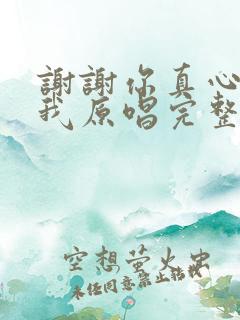 謝謝你真心
我原唱完整
空想萤火虫
未经同意禁止转载